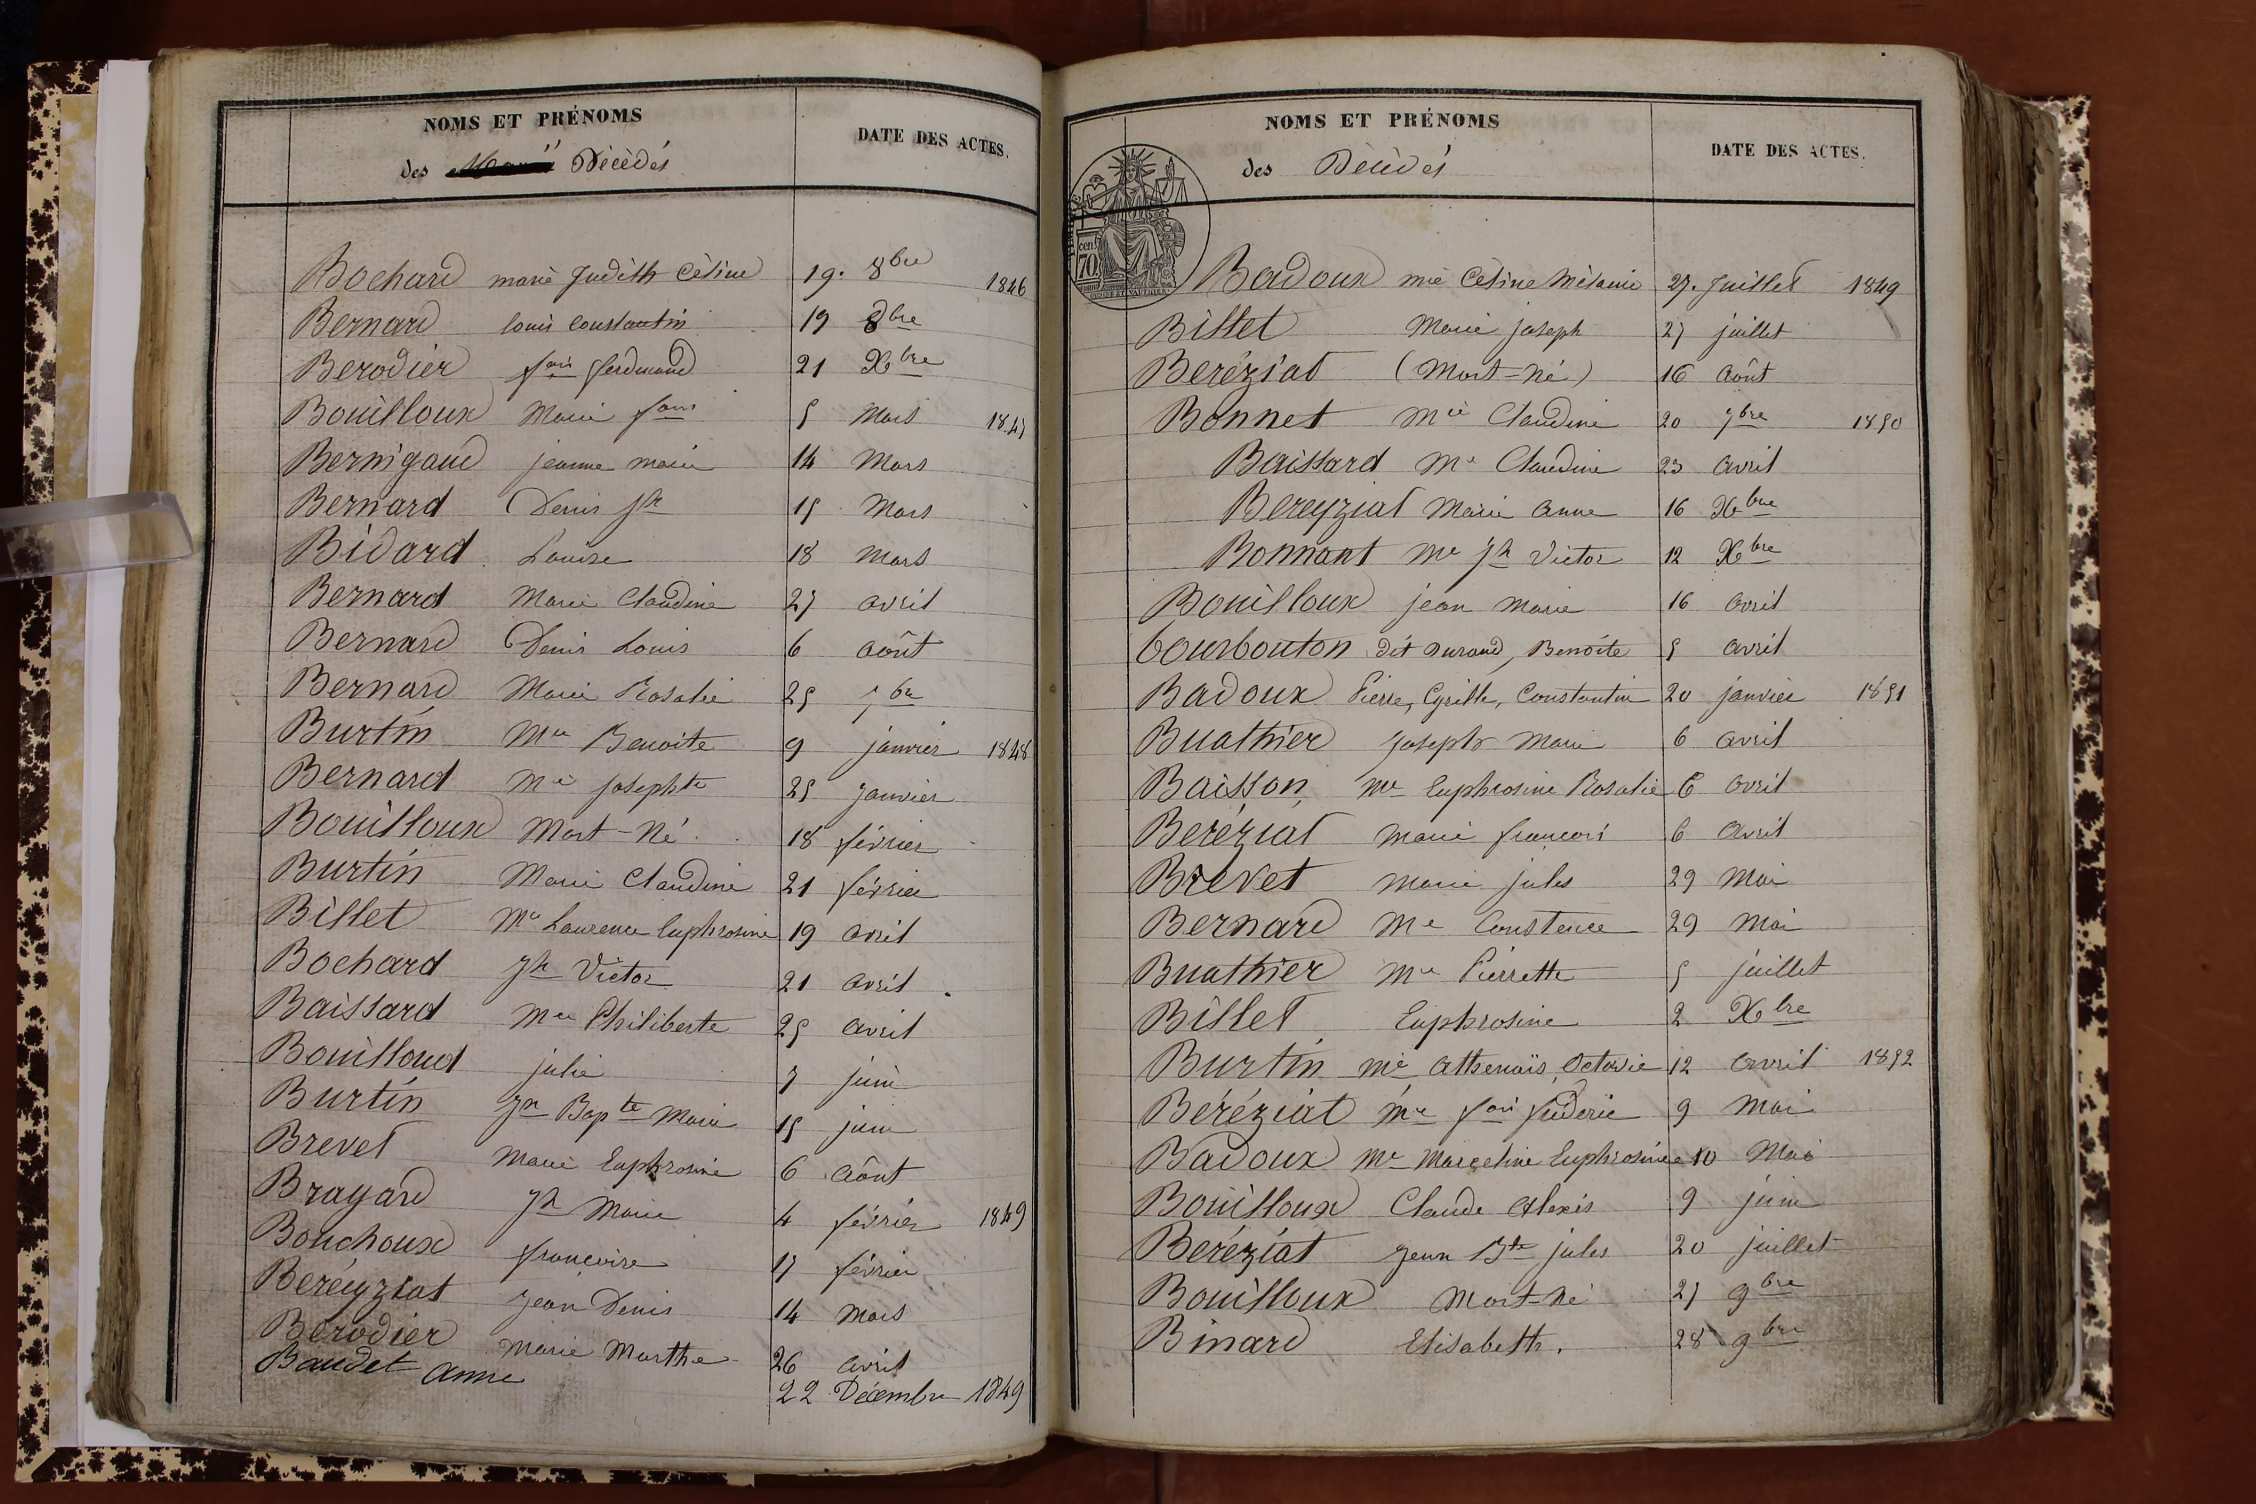 NOMS ET PRÉNOMS
DATE DES ACTES.
des Décèdés
Bochard marie Judith Céline 19. 8bre 1846
Bernard louis constantin 19 8bre
Berodier fois ferdinand 21 Xbre
Bouilloux Marie fois 5 Mars 1847
Bernigaud jeanne marie 14 Mars
Bernard Denis jh 15 Mars
Bidard Louise 18 Mars
Bernard Marie Claudine 27 avril
Bernard Denis Louis 6 Août
Bernard Marie Rosalie 25 7bre
Burtin Mie Benoite 9 janvier 1848
Bernard Mie josephte 25 janvier
Bouilloux Mort-Né 18 février
Burtin Marie Claudine 21 février
Billet Me Laurence Euphrosine 19 avril
Bochard Jh Victor 21 avril
Baissard Mie Philiberte 25 avril
Bouilloud julie 7 juin
Burtin Jn Bapte Marie 15 juin
Brevet Marie Euphrosine 6 Août
Brayard Jh Marie 4 février 1849
Bouchoux françoise 17 février
Beréyziat Jean Denis 14 Mars
Berodier Marie Marthe 26 avril
Baudet Anne 22 Décembre 1849
NOMS ET PRÉNOMS
DATE DES ACTES.
des Décédés
cent. 70
Badoux mie Céline Mélanie 27. Juillet 1849
Billet Marie joseph 27 juillet
Beréziat (Mort-né) 16 Août
Bonnet Mie Claudine 20 7bre 1850
Baissard Me Claudine 23 avril
Bereyziat Marie Anne 16 Xbre
Bonnant Me Jh Victor 12 Xbre
Bouilloux jean Marie 16 avril
bourbouton dit Durand, Benoite 5 avril
Badoux Pierre, Cyrille, Constantin 20 janvier 1851
Buathier Joseph Marie 6 avril
Baisson, Me Euphrosine Rosalie 6 avril
Beréziat Marie françois 6 avril
Brevet Marie jules 29 Mai
Bernard Me Constence 29 Mai
Buathier Me Pierrette 5 juillet
Billet Euphrosine 2 Xbre
Burtin Mie Athenaïs, Octavie 12 avril 1852
Beréziat Me fois fréderic 9 Mai
Badoux Me Marceline Euphrosine 10 Mai
Bouilloux Claude Alexis 9 juin
Beréziat Jean Bte jules 20 juillet
Bouilloux Mort-né 27 9bre
Binard Elisabeth. 28 9bre